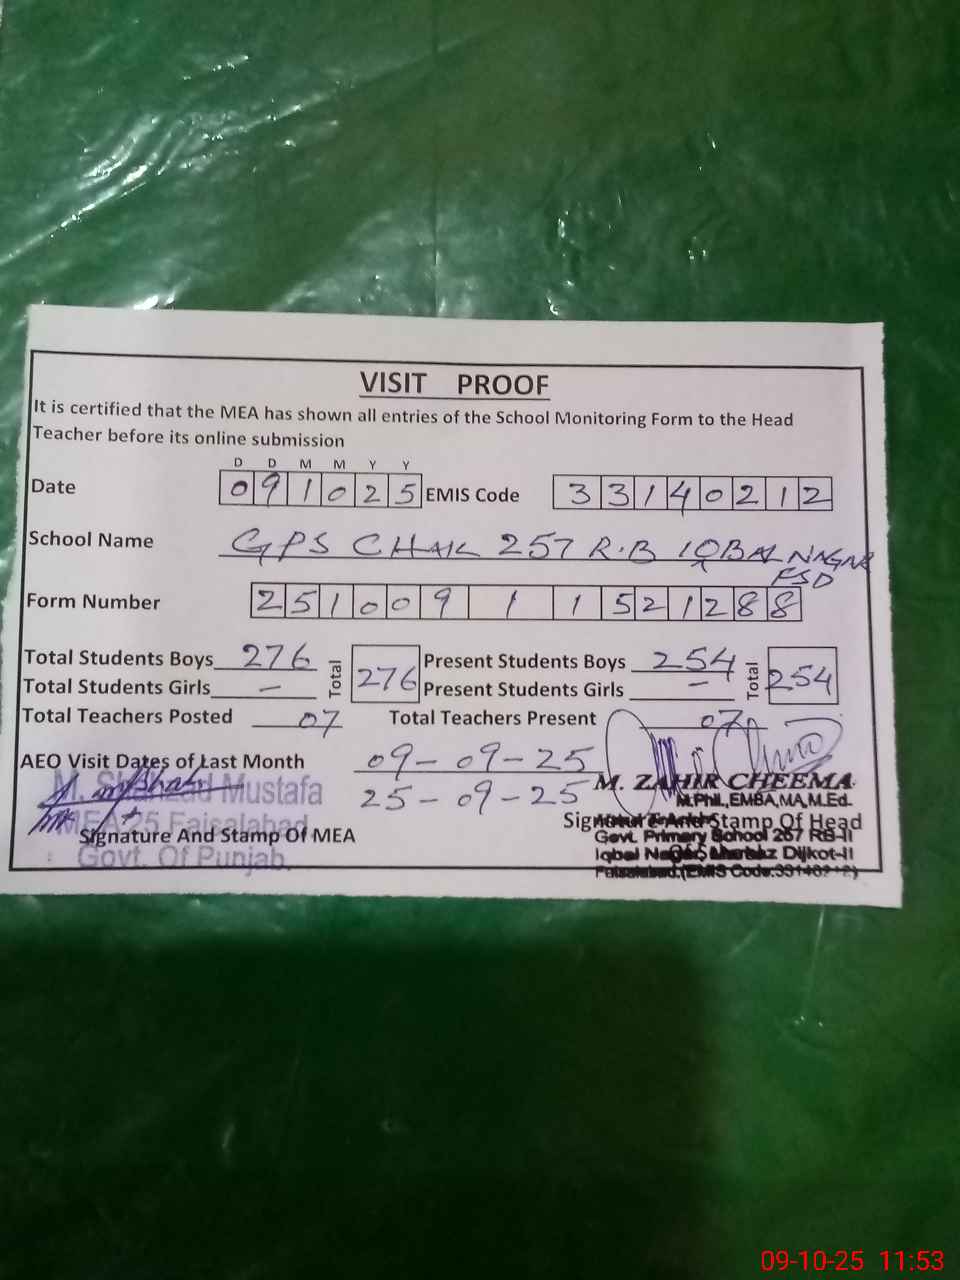 VISIT PROOF
It is certified that the MEA has shown all entries of the School Monitoring Form to the Head
Teacher before its online submission
D D M M Y Y
Date 0 9 1 0 2 5 EMIS Code 3 3 1 4 0 2 1 2
School Name GPS CHAK 257 R.B IQBAL NAGAR
FSD
Form Number 2 5 1 0 0 9 1 1 5 2 1 2 8 8
Total Students Boys 276 Total 276 Present Students Boys 254 Total 254
Total Students Girls — Present Students Girls —
Total Teachers Posted 07 Total Teachers Present 07
AEO Visit Dates of Last Month 09-09-25
25-09-25
M. Shahzad Mustafa
MEA-25 Faisalabad
Govt. Of Punjab.
Signature And Stamp Of MEA
M. ZAHIR CHEEMA
M.Phil.,EMBA,MA,M.Ed.
Signature And Stamp Of Head
Govt. Primary School 257 RB-II
Iqbal Nagar, Markaz Dijkot-II
Faisalabad.(EMIS Code:33140212)
09-10-25 11:53